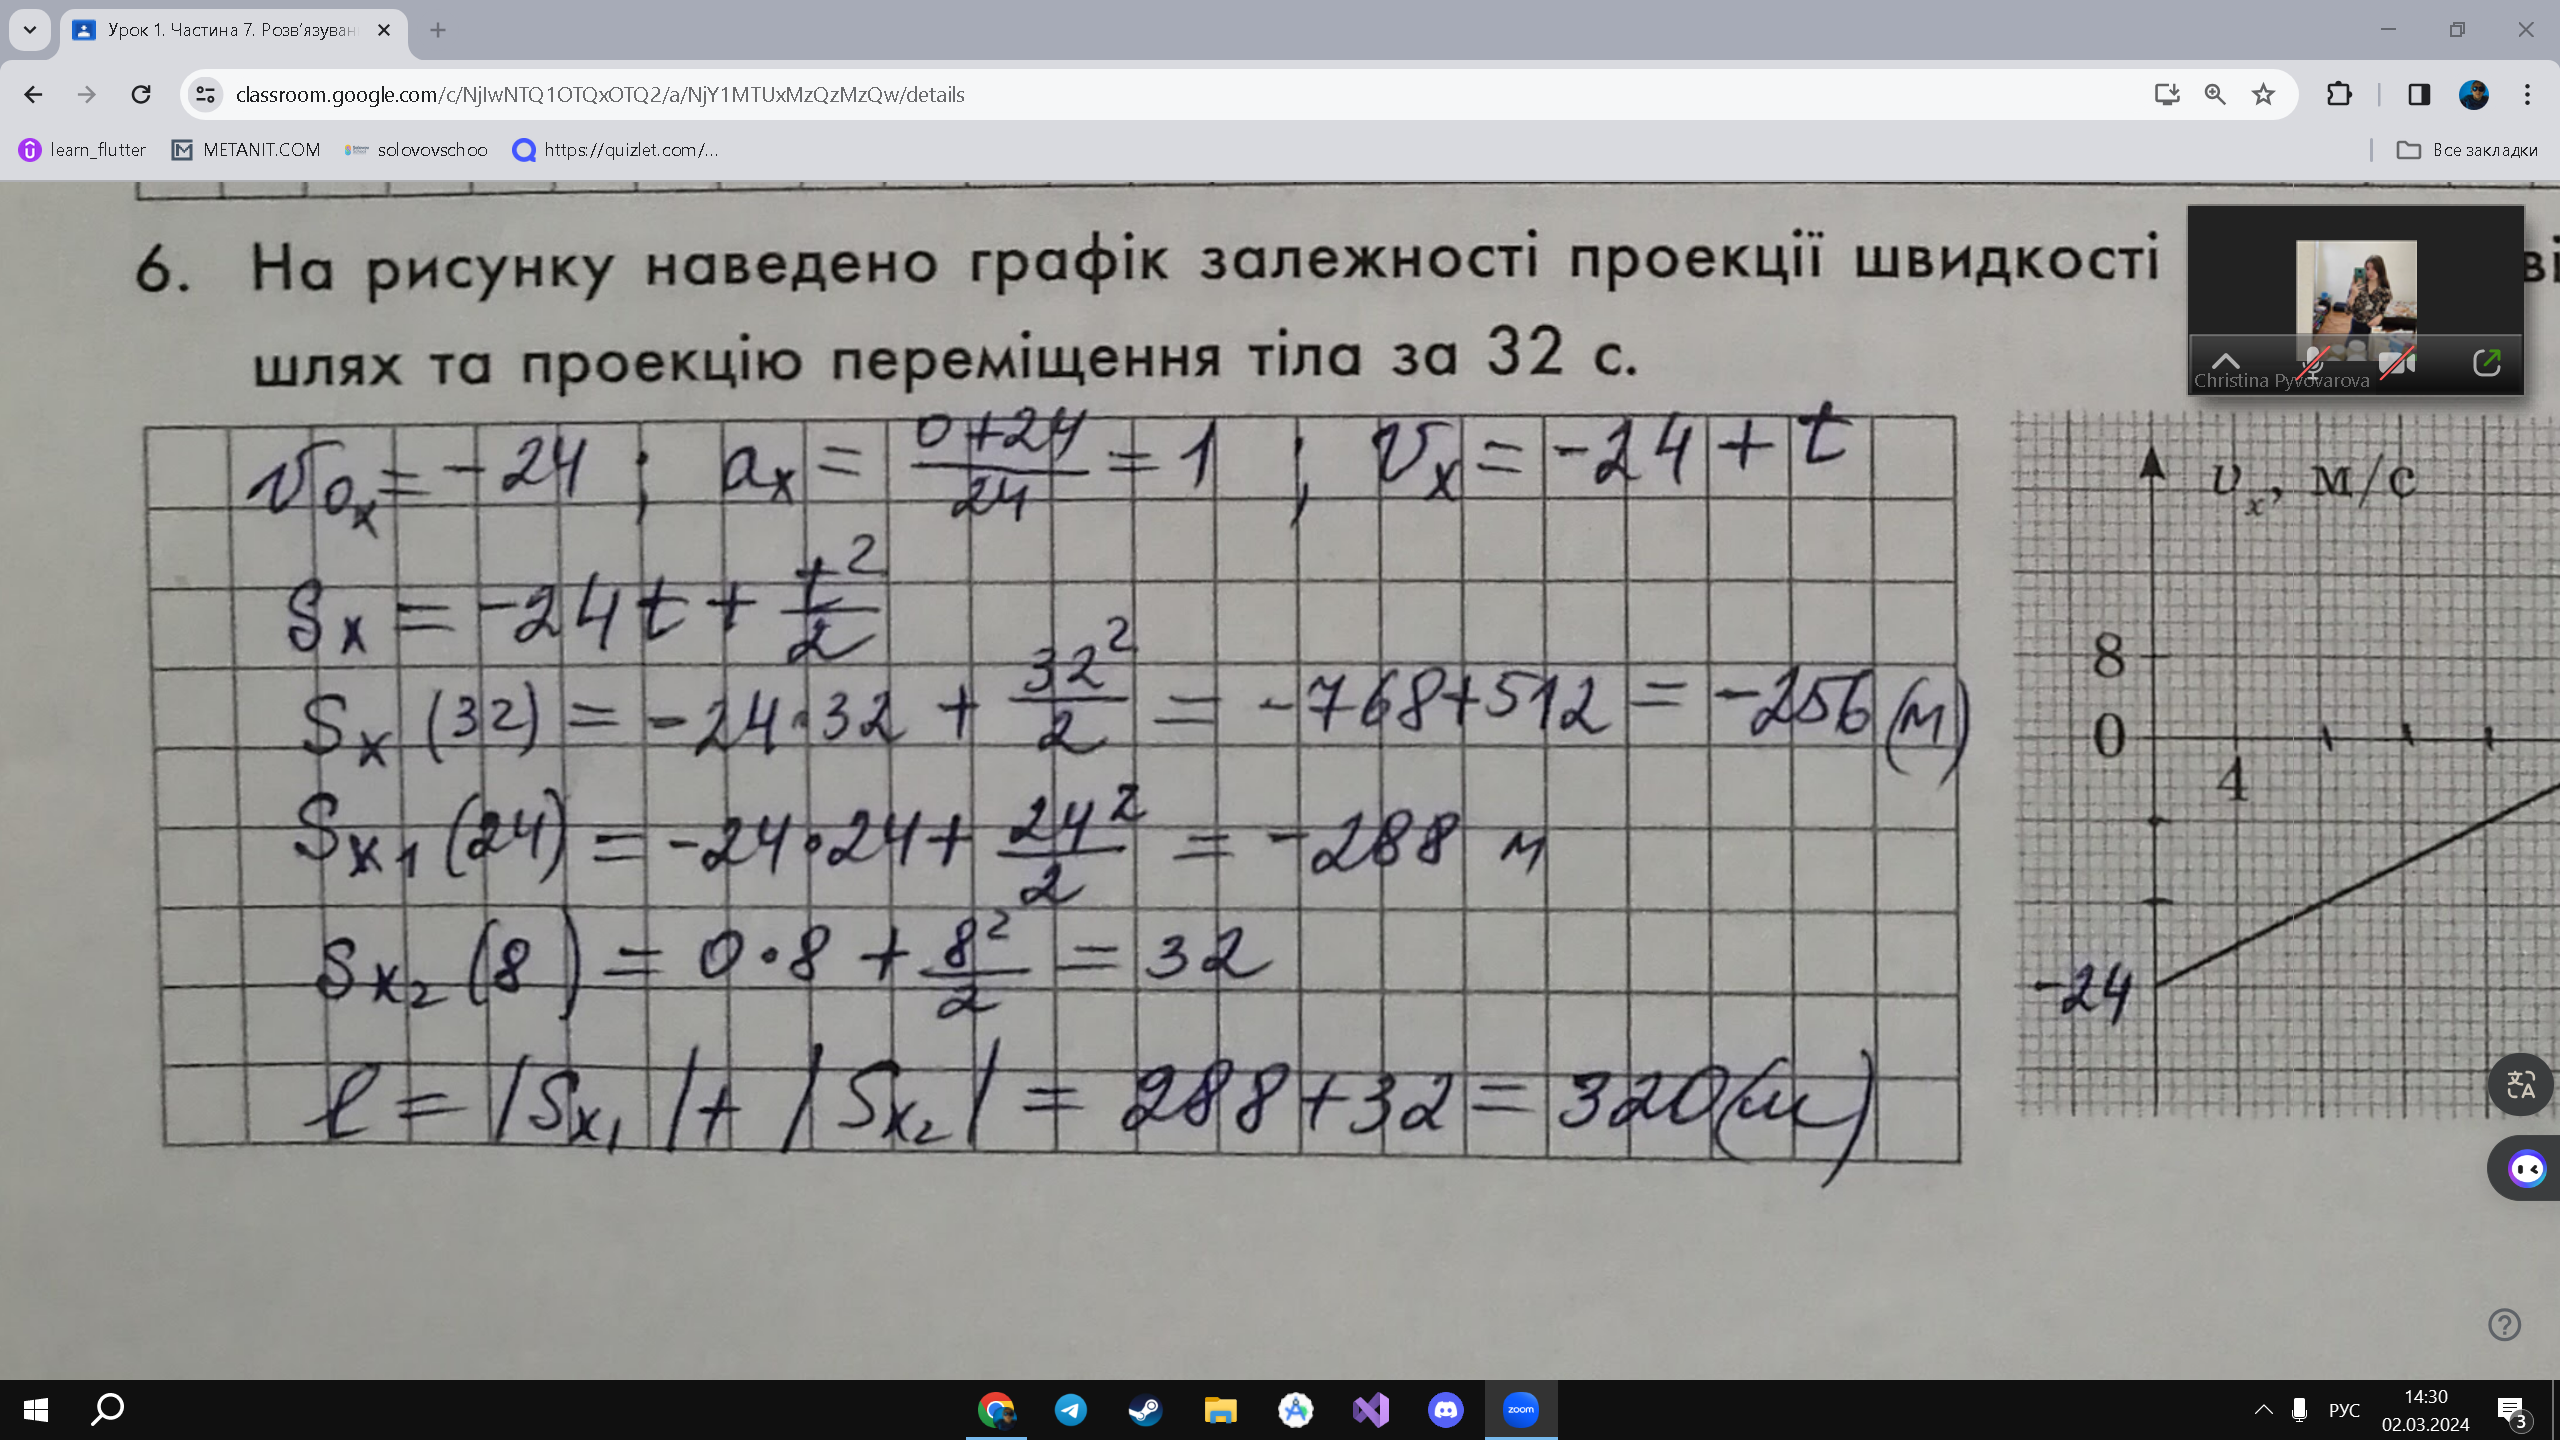 Урок 1. Частина 7. Розв'язуван
classroom.google.com/c/NjIwNTQ1OTQxOTQ2/a/NjY1MTUxMzQzMzQw/details
learn_flutter METANIT.COM solovovschoo https://quizlet.com/... Все закладки
6. На рисунку наведено графік залежності проекції швидкості ві
шлях та проекцію переміщення тіла за 32 с.
Christina Pyvovarova
v₀ₓ = -24 ; aₓ = (0+24)/24 = 1 ; vₓ = -24 + t
Sₓ = -24t + t²/2
Sₓ (32) = -24·32 + 32²/2 = -768+512 = -256 (м)
Sₓ₁ (24) = -24·24 + 24²/2 = -288 м
Sₓ₂ (8) = 0·8 + 8²/2 = 32
ℓ = |Sₓ₁| + |Sₓ₂| = 288+32 = 320 (м)
vₓ, м/с
8
0
4
-24
zoom
РУС
14:30
02.03.2024
3